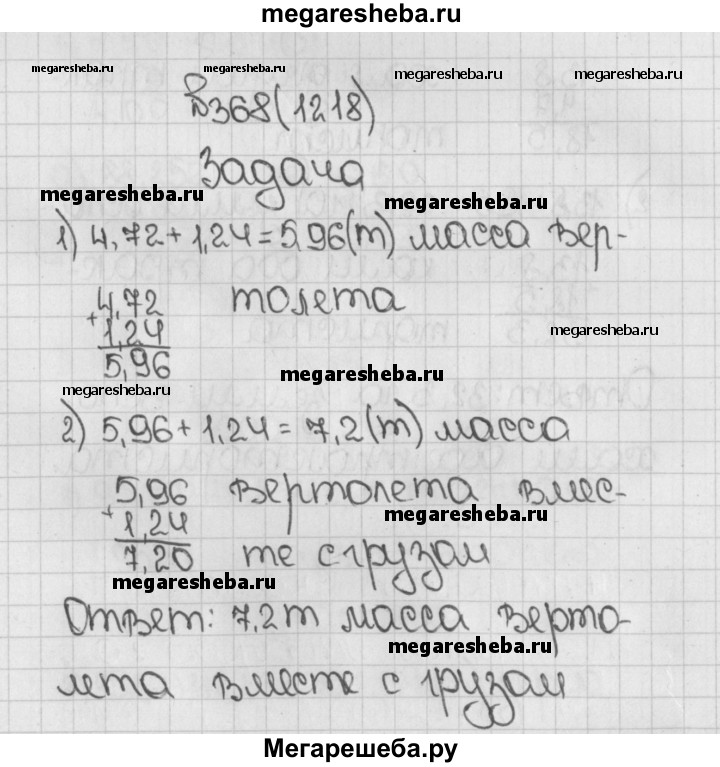 megaresheba.ru
megaresheba.ru megaresheba.ru megaresheba.ru
№368(1218)
Задача
megaresheba.ru megaresheba.ru
1) 4,72+1,24=5,96(т) масса вер-
4,72 толета
+1,24 megaresheba.ru
5,96
megaresheba.ru megaresheba.ru
2) 5,96+1,24=7,2(т) масса
5,96 вертолета вмес-
+1,24 megaresheba.ru
7,20 те с грузом
megaresheba.ru
Ответ: 7,2т масса верто-
megaresheba.ru
лета вместе с грузом
Мегарешеба.ру